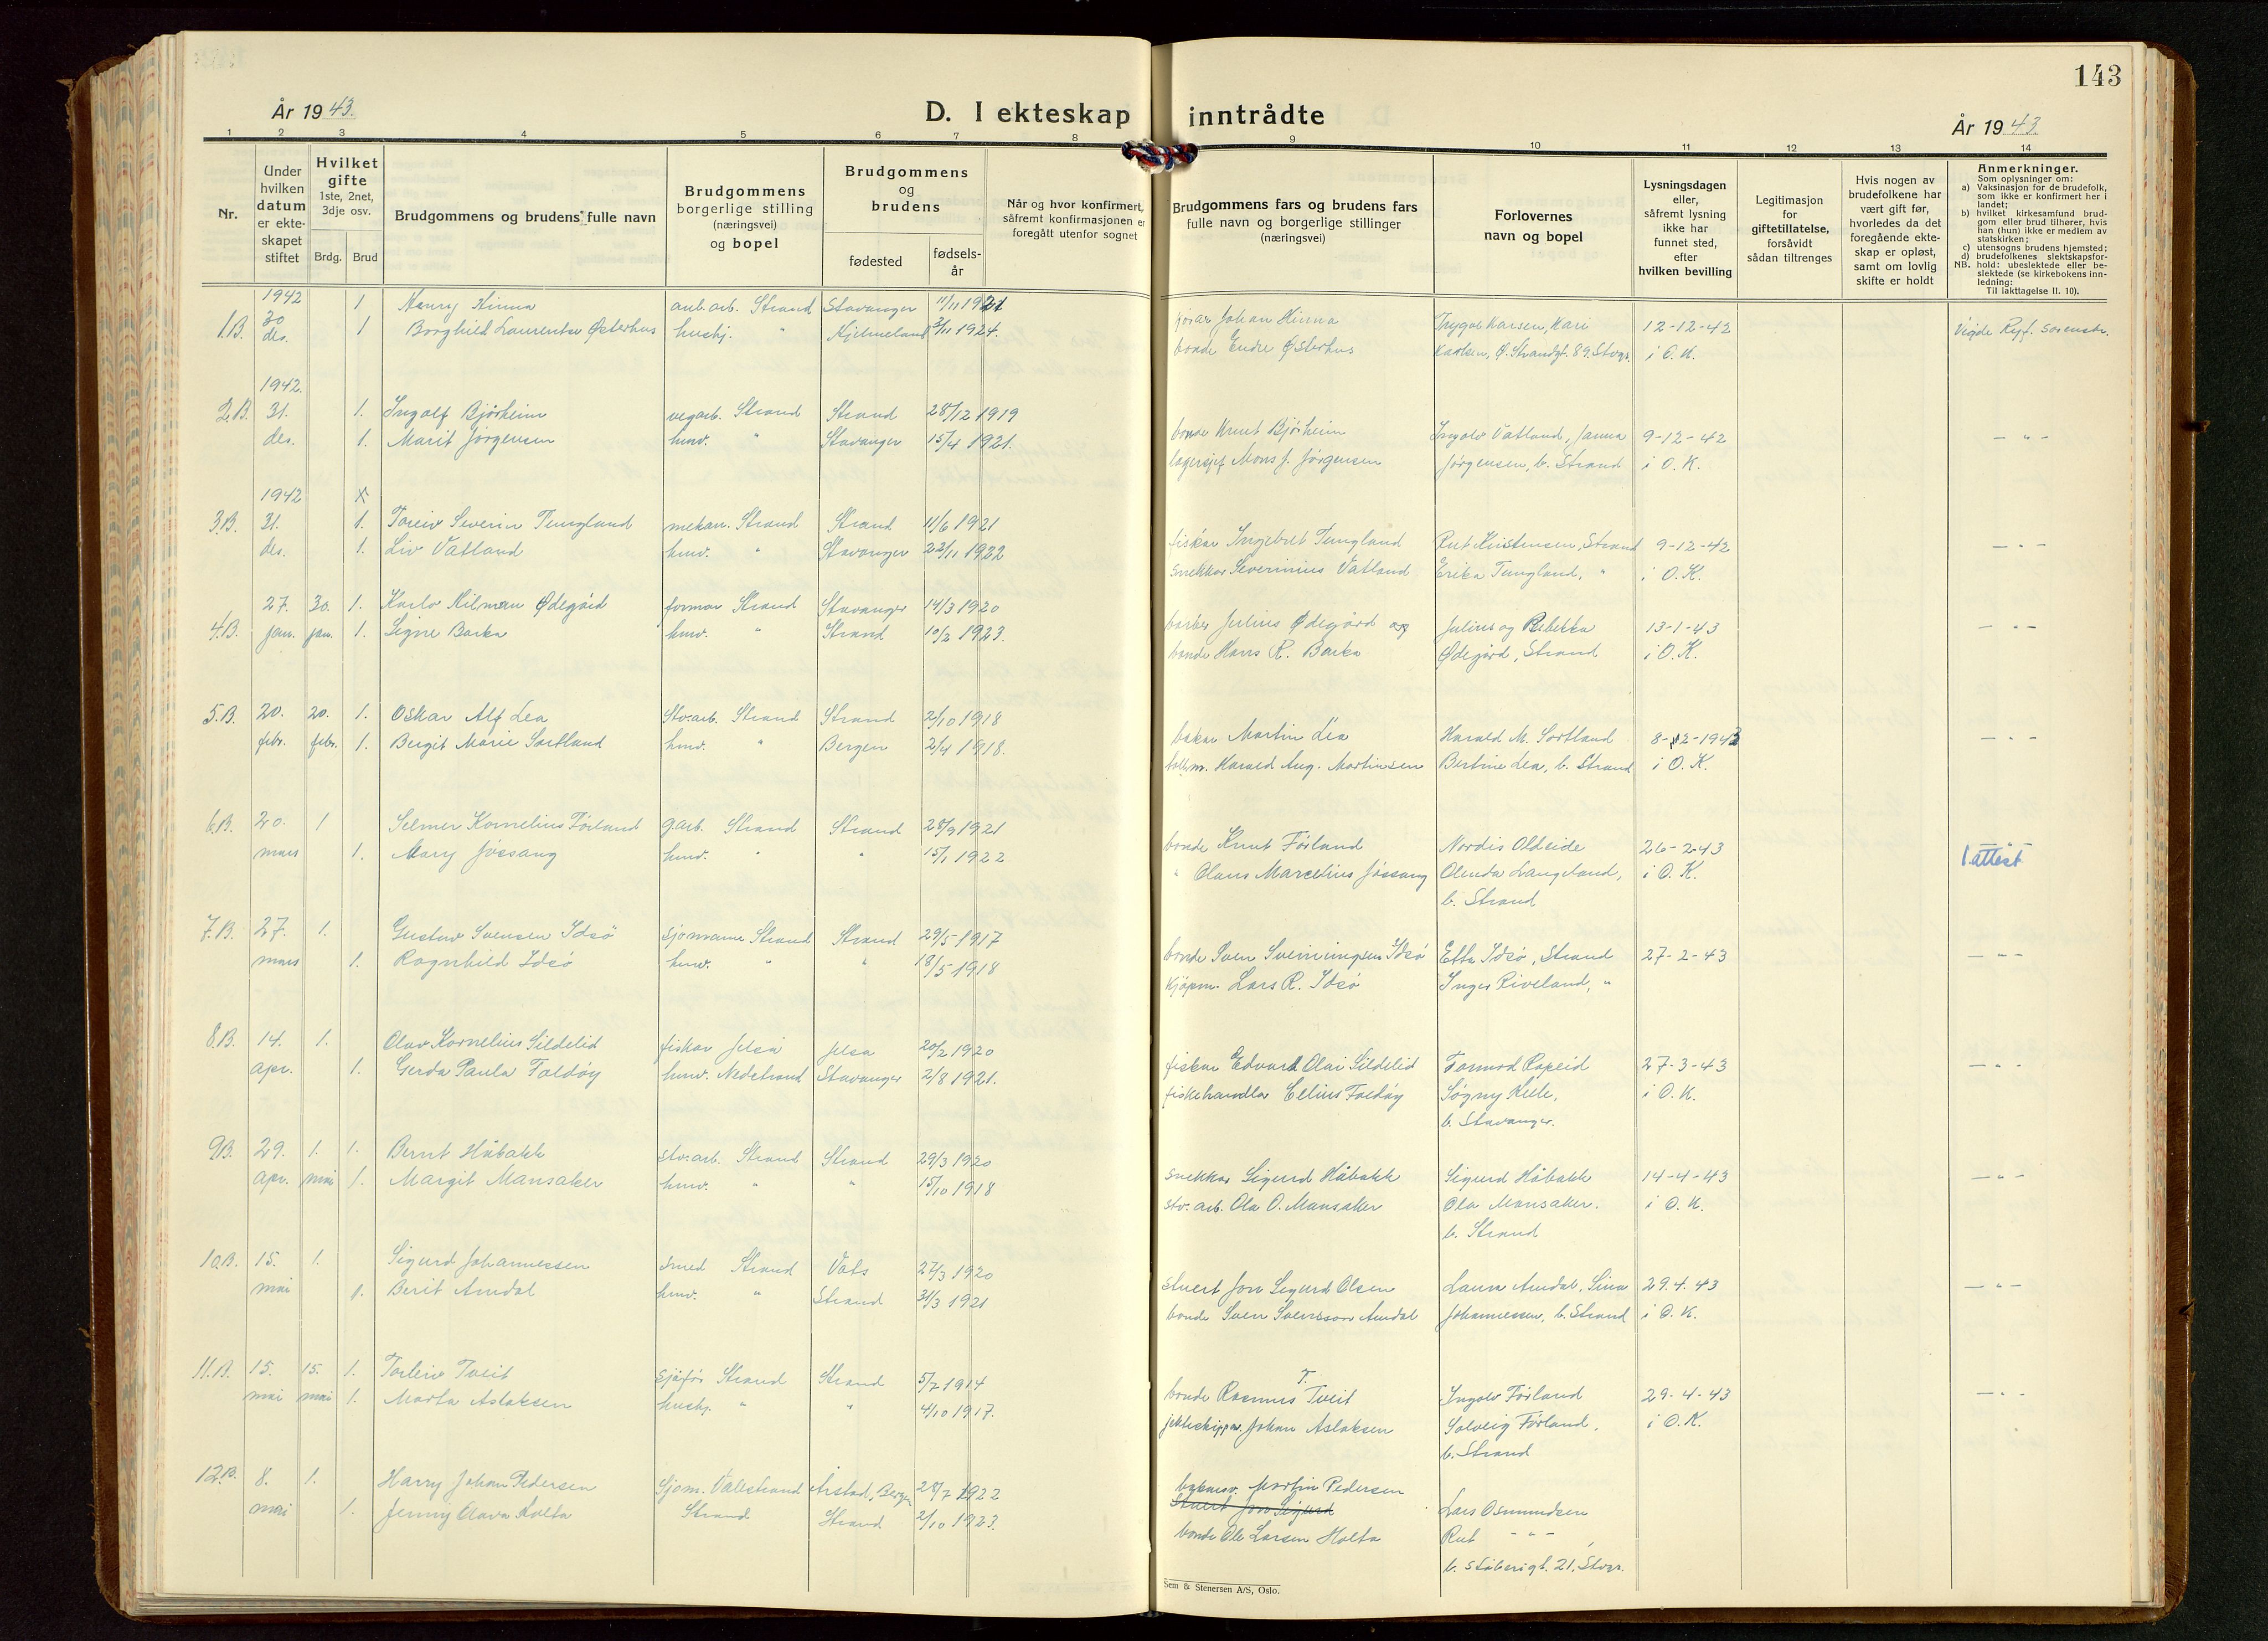 143
År 1943.
D. I ekteskap inntrådte
År 1943.
1 2 3 4 5 6 7 8 9 10 11 12 13 14
Nr.
Under hvilken datum er ekteskapet stiftet
Hvilket gifte 1ste, 2net, 3dje osv.
Brdg. Brud
Brudgommens og brudens fulle navn
Brudgommens borgerlige stilling (næringsvei) og bopel
Brudgommens og brudens
fødested
fødsels-år
Når og hvor konfirmert, såfremt konfirmasjonen er foregått utenfor sognet
Brudgommens fars og brudens fars fulle navn og borgerlige stillinger (næringsvei)
Forlovernes navn og bopel
Lysningsdagen eller, såfremt lysning ikke har funnet sted, efter hvilken bevilling
Legitimasjon for giftetillatelse, forsåvidt sådan tiltrenges
Hvis nogen av brudefolkene har vært gift før, hvorledes da det foregående ekteskap er opløst, samt om lovlig skifte er holdt
Anmerkninger.
Som oplysninger om:
a) Vaksinasjon for de brudefolk, som ikke er konfirmert her i landet;
b) hvilket kirkesamfund brudgom eller brud tilhører, hvis han (hun) ikke er medlem av statskirken;
c) utensogns brudens hjemsted;
d) brudefolkenes slektskapsforhold: ubeslektede eller beslektede (se kirkebokens innledning:
NB. Til iakttagelse II. 10).
1942 1 Henry Hinna anl.arb. Strand Stavanger 11/11 1921 Johan Hinna Trygve Karsen, Kari 12-12-42 Vigde Ryf. sorenskr.
1.B. 30 des. 1 Borghild Laurentse Østerhus hushj. " Hjelmeland 2/11 1924. bonde Endre Østerhus Karlsen, Ø. Strandgt. 89. Stvgr. i O.K.
1942.
2.B. 31. 1. Ingolf Bjørheim vegarb. Strand Strand 28/12 1919 bonde Knut Bjørheim Ingolv Vatland, Janna 9-12-42 — " —
des. 1. Marit Jørgensen hmv. " Stavanger 15/4 1921. lagersjef Mons J. Jørgensen Jørgensen, b. Strand i O.K.
1942 x
3.B. 31. 1. Toleiv Severin Tungland mekan. Strand Strand 11/6 1921 fiskar Ingebret Tungland Rut Kristensen, Strand 9-12-42 — " —
des. 1. Liv Vatland hmv. " Stavanger 22/11 1922 snekkar Severinius Vatland Erika Tungland, " i O.K.
27. 30. 1. Karlo Hilman Ødegård formar Strand Stavanger 14/3 1920 Julius Ødegård og Julius og Rebekka 13-1-43 — " —
4.B. jan. jan. 1. Signe Barka hmv. " Strand 10/2 1923. bonde Hans R. Barka Ødegård, Strand i O.K.
5.B. 20. 20. 1. Oskar Alf Lea Stv.arb. Strand Strand 2/10 1918 bakar Martin Lea Harald M. Sortland 8-2-1943 — " —
febr. febr. 1. Bergit Marie Sortland hmv. " Bergen 2/4 1918. Harald Aug. Martinsen Bertine Lea, b. Strand i O.K.
6.B. 20. 1 Selmer Kornelius Førland g.arb. Strand Strand 28/9 1921 bonde Knut Førland Nordis Oldeide 26-2-43 1 attest
mars 1. Mary Jøssang hmv. " " 15/1 1922 " Olaus Marcelius Jøssang Olenda Langeland, i O.K.
b. Strand
7.B. 27. 1. Gustav Svensen Idsø sjømann Strand Strand 29/5-1917 bonde Sven Svenningsen Idsø Etta Idsø, Strand 27-2-43 — " —
mars 1. Ragnhild Idsø hmv. " " 18/5-1918 kjøpm. Lars R. Idsø Inger Riveland, "
8.B. 14. 1. Olav Kornelius Sildelid fiskar Jelsa Jelsa 20/2 1920 fiskar Edvard Olai Sildelid Tormod Rapeid 27-3-43 — " —
apr. 1. Gerda Paula Foldøy hmv. Nedstrand Stavanger 2/8 1921. fiskehandlar Elius Foldøy i O.K.
b. Stavanger.
9.B. 29. 1. 1. Bernt Håbakk stv.arb. Strand Strand 29/3 1920 snekkar Sigurd Håbakk Sigurd Håbakk 14-4-43 — " —
apr. mai 1. Margit Mansaker hmv. " " 15/10 1918 stv.arb. Ola O. Mansaker Ola Mansaker. i O.K.
b. Strand
10.B. 15. 1. Sigurd Johannessen smed Strand Vats 27/3 1920 stuert Jon Sigurd Olsen Laura Amdal, Sina 29.4.43 — " —
mai 1. Berit Amdal hmv. " Strand 31/3 1921 bonde Sven Svensson Amdal Johannessen, b. Strand i O.K.
11.B. 15. 15. 1. Torleiv Tveit Sjåfør Strand Strand 5/7 1914 bonde Rasmus T. Tveit Ingolv Førland 29-4-43 — " —
mai mai 1. Marta Aslaksen hushj. " " 4/10 1917. jekteskippar. Johan Aslaksen Solveig Førland, i O.K.
b. Strand
12.B. 8. 1. Harry Johan Pedersen Sjøm. Vallestrand Årstad, Bergen 28/7 1922 Martin Pedersen
Stuert Jon Sigurd Lars Osmundsen
mai 1. Jenny Olava Holta Strand Strand 2/10 1923. bonde Ole Larsen Holta Rut — " —
b. Støberigt. 21, Stvgr.
Sem & Stenersen A/S, Oslo.